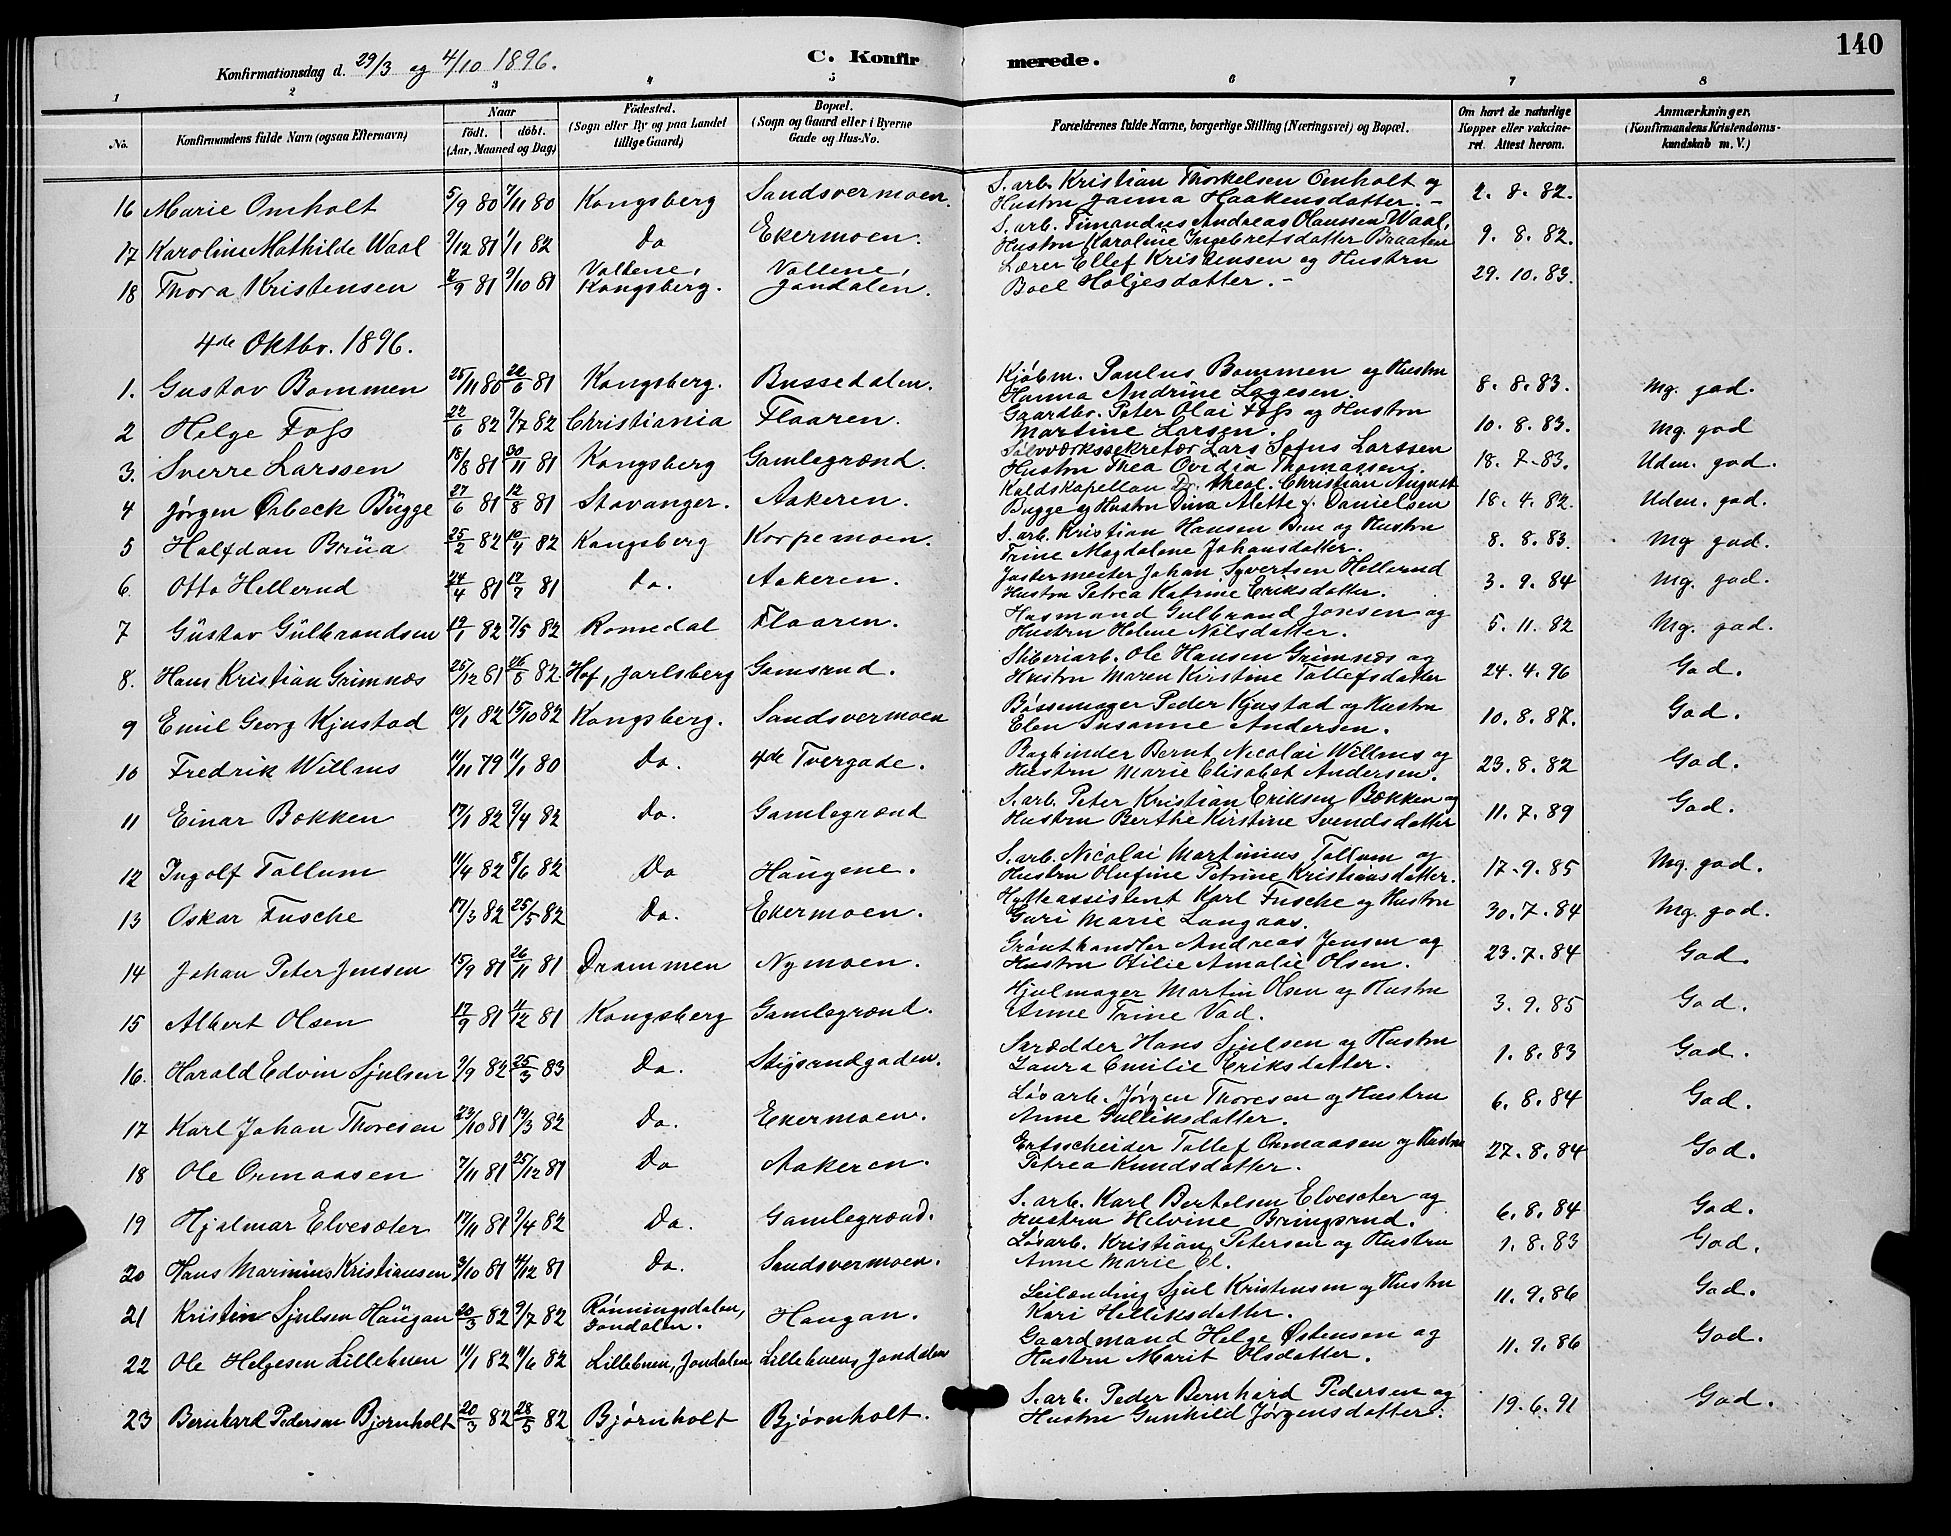 Konfirmationsdag d. 29/3 og 4/10 1896. C. Konfirmerede. 140
1 2 3 4 5 6 7 8
No. Konfirmandens fulde Navn (ogsaa Efternavn) Naar födt. döbt. (Aar, Maaned og Dag) Födested. (Sogn eller By og paa Landet tillige Gaard) Bopæl. (Sogn og Gaard eller i Byerne Gade og Hus-No. Forældrenes fulde Navne, borgerlige Stilling (Næringsvei) og Bopæl. Om havt de naturlige Kopper eller vakcineret. Attest herom. Anmærkninger. (Konfirmandens Kristendomskundskab m. V.)
16 Marie Omholt 5/9 80 7/11 80 Kongsberg Sandsvermoen. S. arb. Kristian Thorkelsen Omholt og Hustru Janna Haakensdatter. – 2. 8. 82.
17 Karoline Mathilde Waal 9/12 81 1/1 82 Do Ekermoen. S. arb. Timandus Andreas Olaussen Waal, Hustru Karoline Ingebretsdatter 9. 8. 82.
18 Thora Kristensen 2/9 81 9/10 81 Vollene, Kongsberg. Vollene, Jondalen. Lærer Ellef Kristensen og Hustru Boel Holjesdatter. – 29. 10. 83.
4de Oktbr. 1896.
1. Gustav Bommen 25/11 80 26/6 81 Kongsberg. Bussedalen. Kjøbm. Paulus Bommen og Hustru Hanna Andrine Lagesen. 8. 8. 83. Mg. god.
2 Helge Foss 22/6 82 9/7 82 Christiania Flaaren. Gaardbr. Peter Olai Foss og Hustru Martine Larsen. 10. 8. 83. Mg god
3. Sverre Larssen 18/8 81 30/11 81 Kongsberg Gamlegrænd. Sølvværkssekretær Lars Sofus Larssen Hustru Thea Ovidia Thomassen. 18. 7. 83. Udm. god.
4 Jørgen Ørbeck Bügge 27/6 81 12/8 81 Stavanger. Aakeren. Kaldskapellan Dr. theol. Christian August Bugge og Hustru Dina Alette f. Danielsen 18. 4. 82. Udm. god.
5 Halfdan Brüa 25/2 82 10/4 82 Kongsberg Korpemoen. S. arb. Kristian Hansen Brua og Hustru Trine Magdalene Johansdatter. 8. 8. 83. Mg god.
6. Otto Hellerud 24/4 81 17/7 81 Do. Aakeren. Justermester Johan Syvertsen Hellerud Hustru Petrea Katrine Eriksdatter. 3. 9. 84 Mg. god.
7 Güstav Gülbrandsen 19/1 82 7/5 82 Romedal Flaaren. Husmand Gulbrand Jonsen og Hustru Helene Nilsdatter. 5. 11. 82 Mg. god.
8. Hans Kristian Grimnæs 25/12 81 26/5 82 Hof, Jarlsberg Gomsrud. Sliberiarb. Ole Hansen Grimnæs og Hustru Maren Kirstine Tollefsdatter 24. 4. 96 God.
9 Emil Georg Kjustad 10/1 82 15/10 82 Kongsberg. Sandsvermoen Bøssemager Peder Kjustad og Hustru Elen Susanne Andersen. 10. 8. 87. God.
10 Fredrik Willms 11/11 79 11/1 80 Do. 4de Tvergade. Bogbinder Bernt Nicolai Willms og Hustru Marie Elisabet Andersen. 23. 8. 82 God.
11 Einar Bækken 17/1 82 9/4 82 Do. Gamlegrænd S. arb. Peter Kristian Eriksen Bækken og Hustru Berthe Kirstine Svendsdatter 11. 7. 89 God.
12 Ingolf Tollum 11/4 82 8/6 82 Do Haugene. S. arb. Nicolai Martinius Tollum og Hustru Olufine Petrine Kristiansdatter. 17. 9. 85 Mg. god.
13 Oskar Fusche 17/3 82 25/5 82 Do. Ekermoen. Hytteassistent Karl Fusche og Hustru Guri Marie Langaas. 30. 7. 84 Mg. god.
14 Johan Peter Jensen 15/9 81 26/11 81 Drammen Nymoen. Grønthandler Andreas Jensen og Hustru Otilie Amalie Olsen. 23. 7. 84 God.
15 Albert Olsen 17/9 81 4/12 81 Kongsberg Gamlegrænd. Hjulmager Martin Olsen og Hustru Anne Trine Vad. 3. 9. 85 God.
16. Harald Edvin Sjulsen 9/9 82 25/3 83 Do. Stigsrudgaden. Skrædder Hans Sjulsen og Hustru Laura Emilie Eriksdatter. 1. 8. 83 God.
17 Karl Johan Thoresen 23/10 81 19/3 82 Do. Ekermoen. Løsarb. Jørgen Thoresen og Hustru Anne Gulliksdatter. 6. 8. 84 God.
18 Ole Ormaasen 7/11 81 25/12 81 Do Aakeren. Ertsscheider Tollef Ormaasen og Hustru Petrea Knudsdatter. 27. 8. 84 God.
19 Hjalmar Elvesæter 17/11 81 9/4 82 Do. Gamlegrænd. S. arb. Karl Bertelsen Elvesæter og Hustru Helvine Bringsrud. 6. 8. 84 God.
20 Hans Marinius Kristiansen 3/10 81 4/12 81 Do. Sandsvermoen. Løsarb. Kristian Petersen og Hustru Anne Marie El. 1. 8. 83 God.
21 Kristin Sjulsen Haügan 20/3 82 9/7 82 Rønningsdalen, Jondalen. Haugan. Leilending Sjul Kristensen og Hustru Kari Helliksdatter. 11. 9. 86 God.
22 Ole Helgesen Lillebuen 11/1 82 11/6 82 Lillebuen, Jondalen Lillebuen, Jondalen Gaardmand Helge Østensen og Hustru Marit Olsdatter. 11. 9. 86 God.
23 Bernhard Pedersen Bjørnholt 20/3 82 28/5 82 Bjørnholt Bjørnholt. S. arb. Peder Bernhard Pedersen og Hustru Gunhild Jørgensdatter. 19. 6. 91 God.